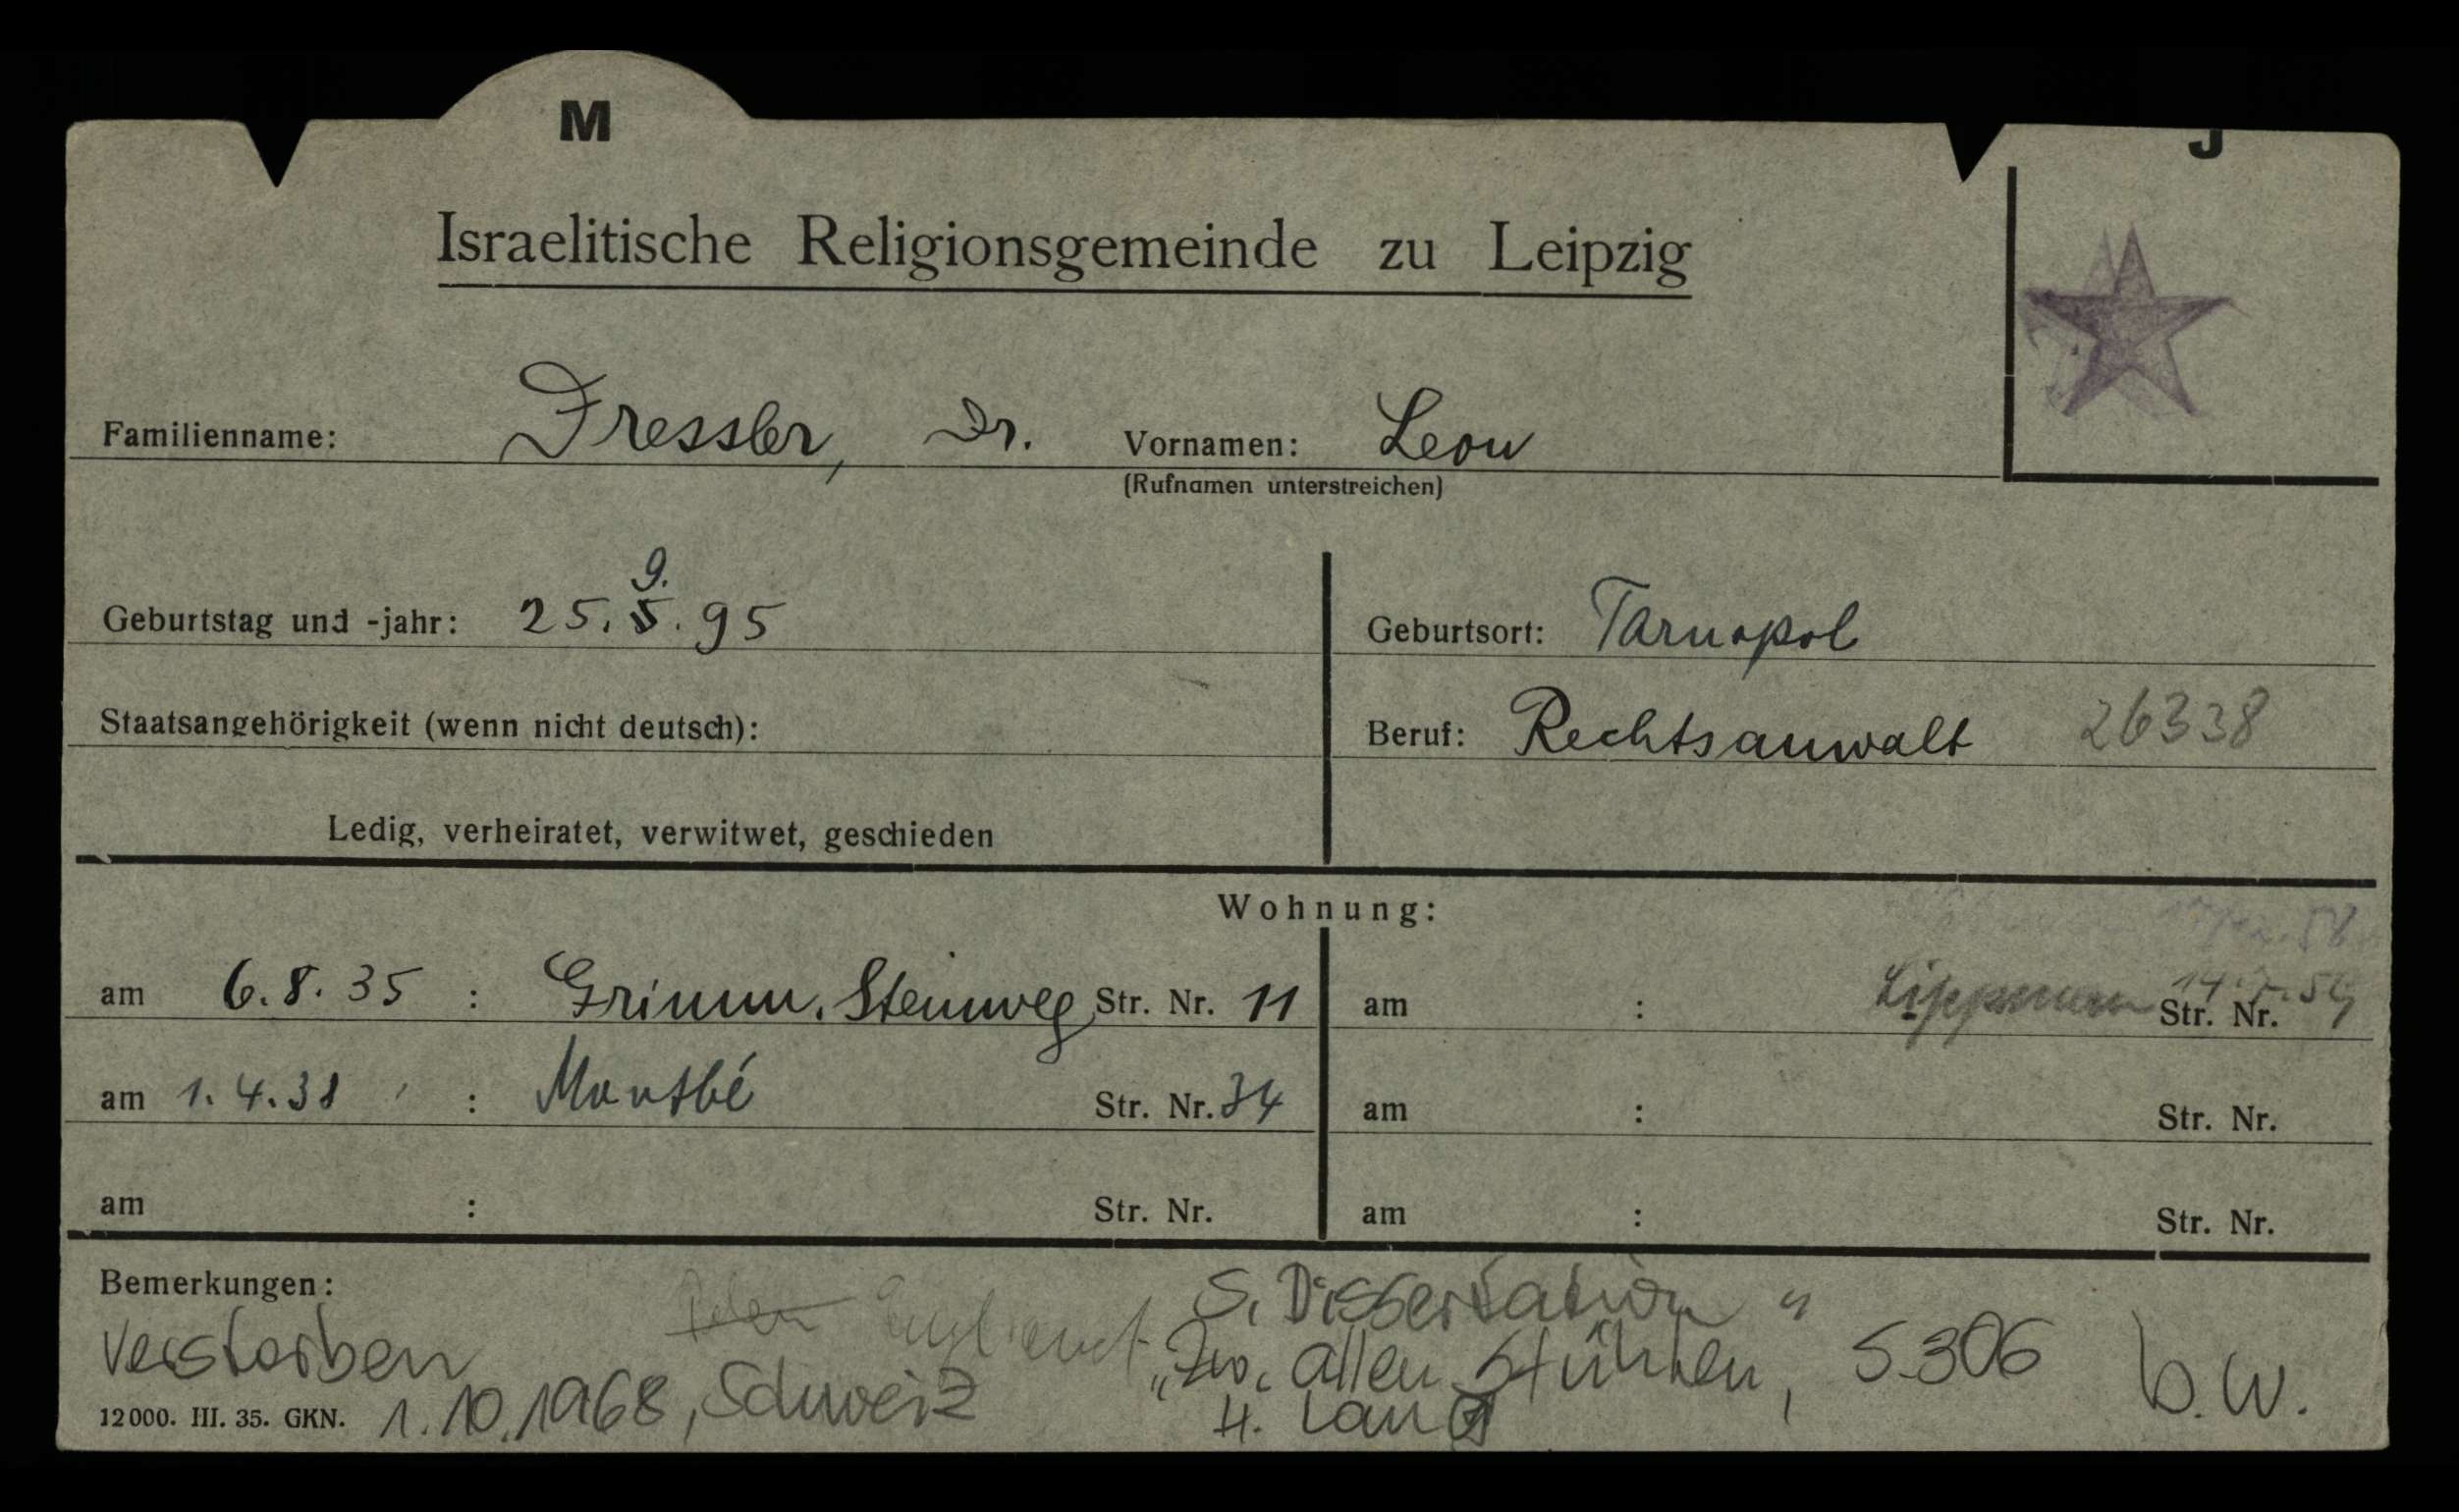 M
J
Israelitische Religionsgemeinde zu Leipzig
Familienname: Dressler, Dr. Vornamen: Leon
(Rufnamen unterstreichen)
9.
Geburtstag und -jahr: 25. 5. 95 Geburtsort: Tarnopol
Staatsangehörigkeit (wenn nicht deutsch): Beruf: Rechtsanwalt 26338
Ledig, verheiratet, verwitwet, geschieden
Wohnung:
am 6. 8. 35 : Grimm. Steinweg Str. Nr. 11 am : Str. Nr.
am 1. 4. 38 : Montbé Str. Nr. 34 am : Str. Nr.
am : Str. Nr. am : Str. Nr.
Bemerkungen: Polen England S. Dissertation
verstorben "Zw. allen Stühlen, S. 306 b.W.
12000. III. 35. GKN. 1.10.1968, Schweiz H. Lang